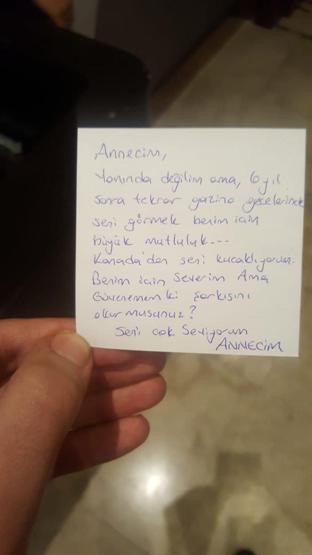 Annecim,
Yanında değilim ama, 6 yıl
sonra tekrar gazino gecelerinde
seni görmek benim için
büyük mutluluk...
Kanada'dan seni kucaklıyorum.
Benim için Severim Ama
Güvenemem ki şarkısını
okur musunuz?
Seni çok Seviyorum
ANNECİM